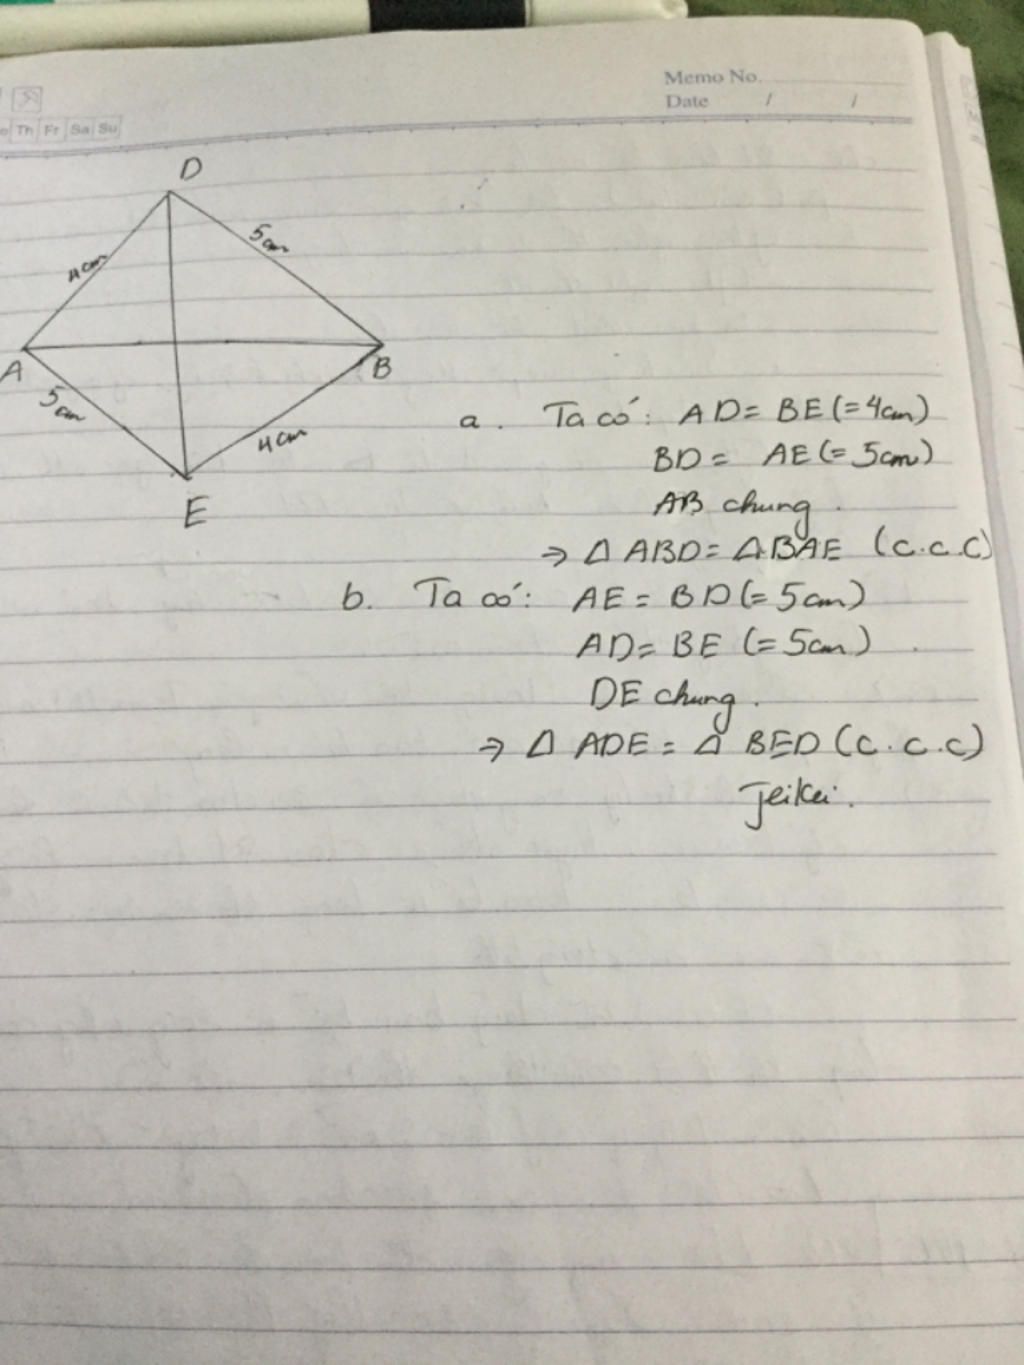 Memo No.
Date / /
Th Fr Sa Su
D
4cm
5cm
A
B
5cm
4cm
E
a. Ta có: AD = BE (= 4cm)
BD = AE (= 5cm)
AB chung.
⇒ Δ ABD = Δ BAE (c.c.c)
b. Ta có: AE = BD (= 5cm)
AD = BE (= 5cm).
DE chung.
⇒ Δ ADE = Δ BED (c.c.c)
Jeikei.